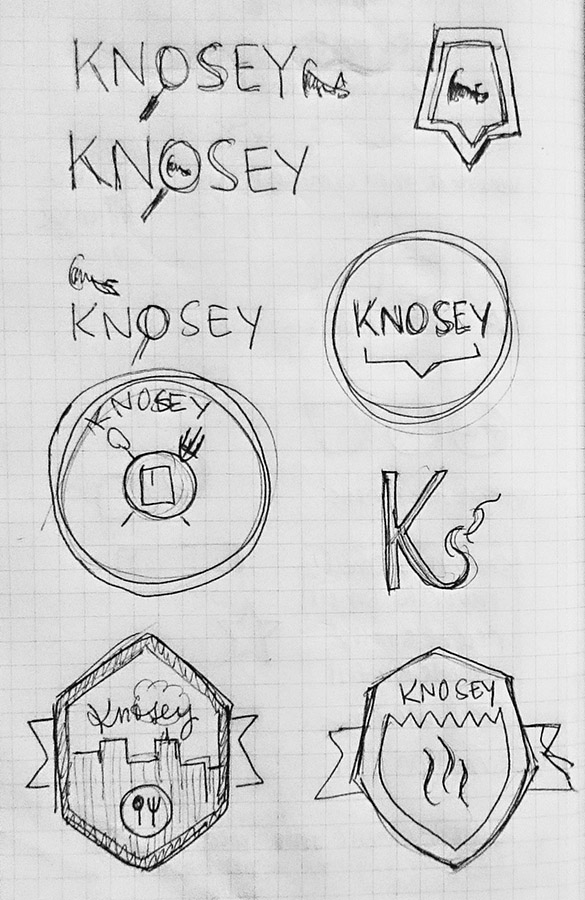 KNOSEY
KNOSEY
KNOSEY
KNOSEY
KNOSEY
K
Knosey
KNOSEY